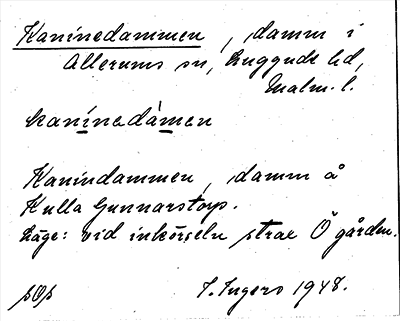 Kaninedammen, damm i
Allerums sn, Luggude hd,
Malm. l.
kaninedàmen
Kanindammen, damm å
Kulla Gunnarstorp.
Läge: vid inkörseln strax Ö gården.
I. Ingers 1948.